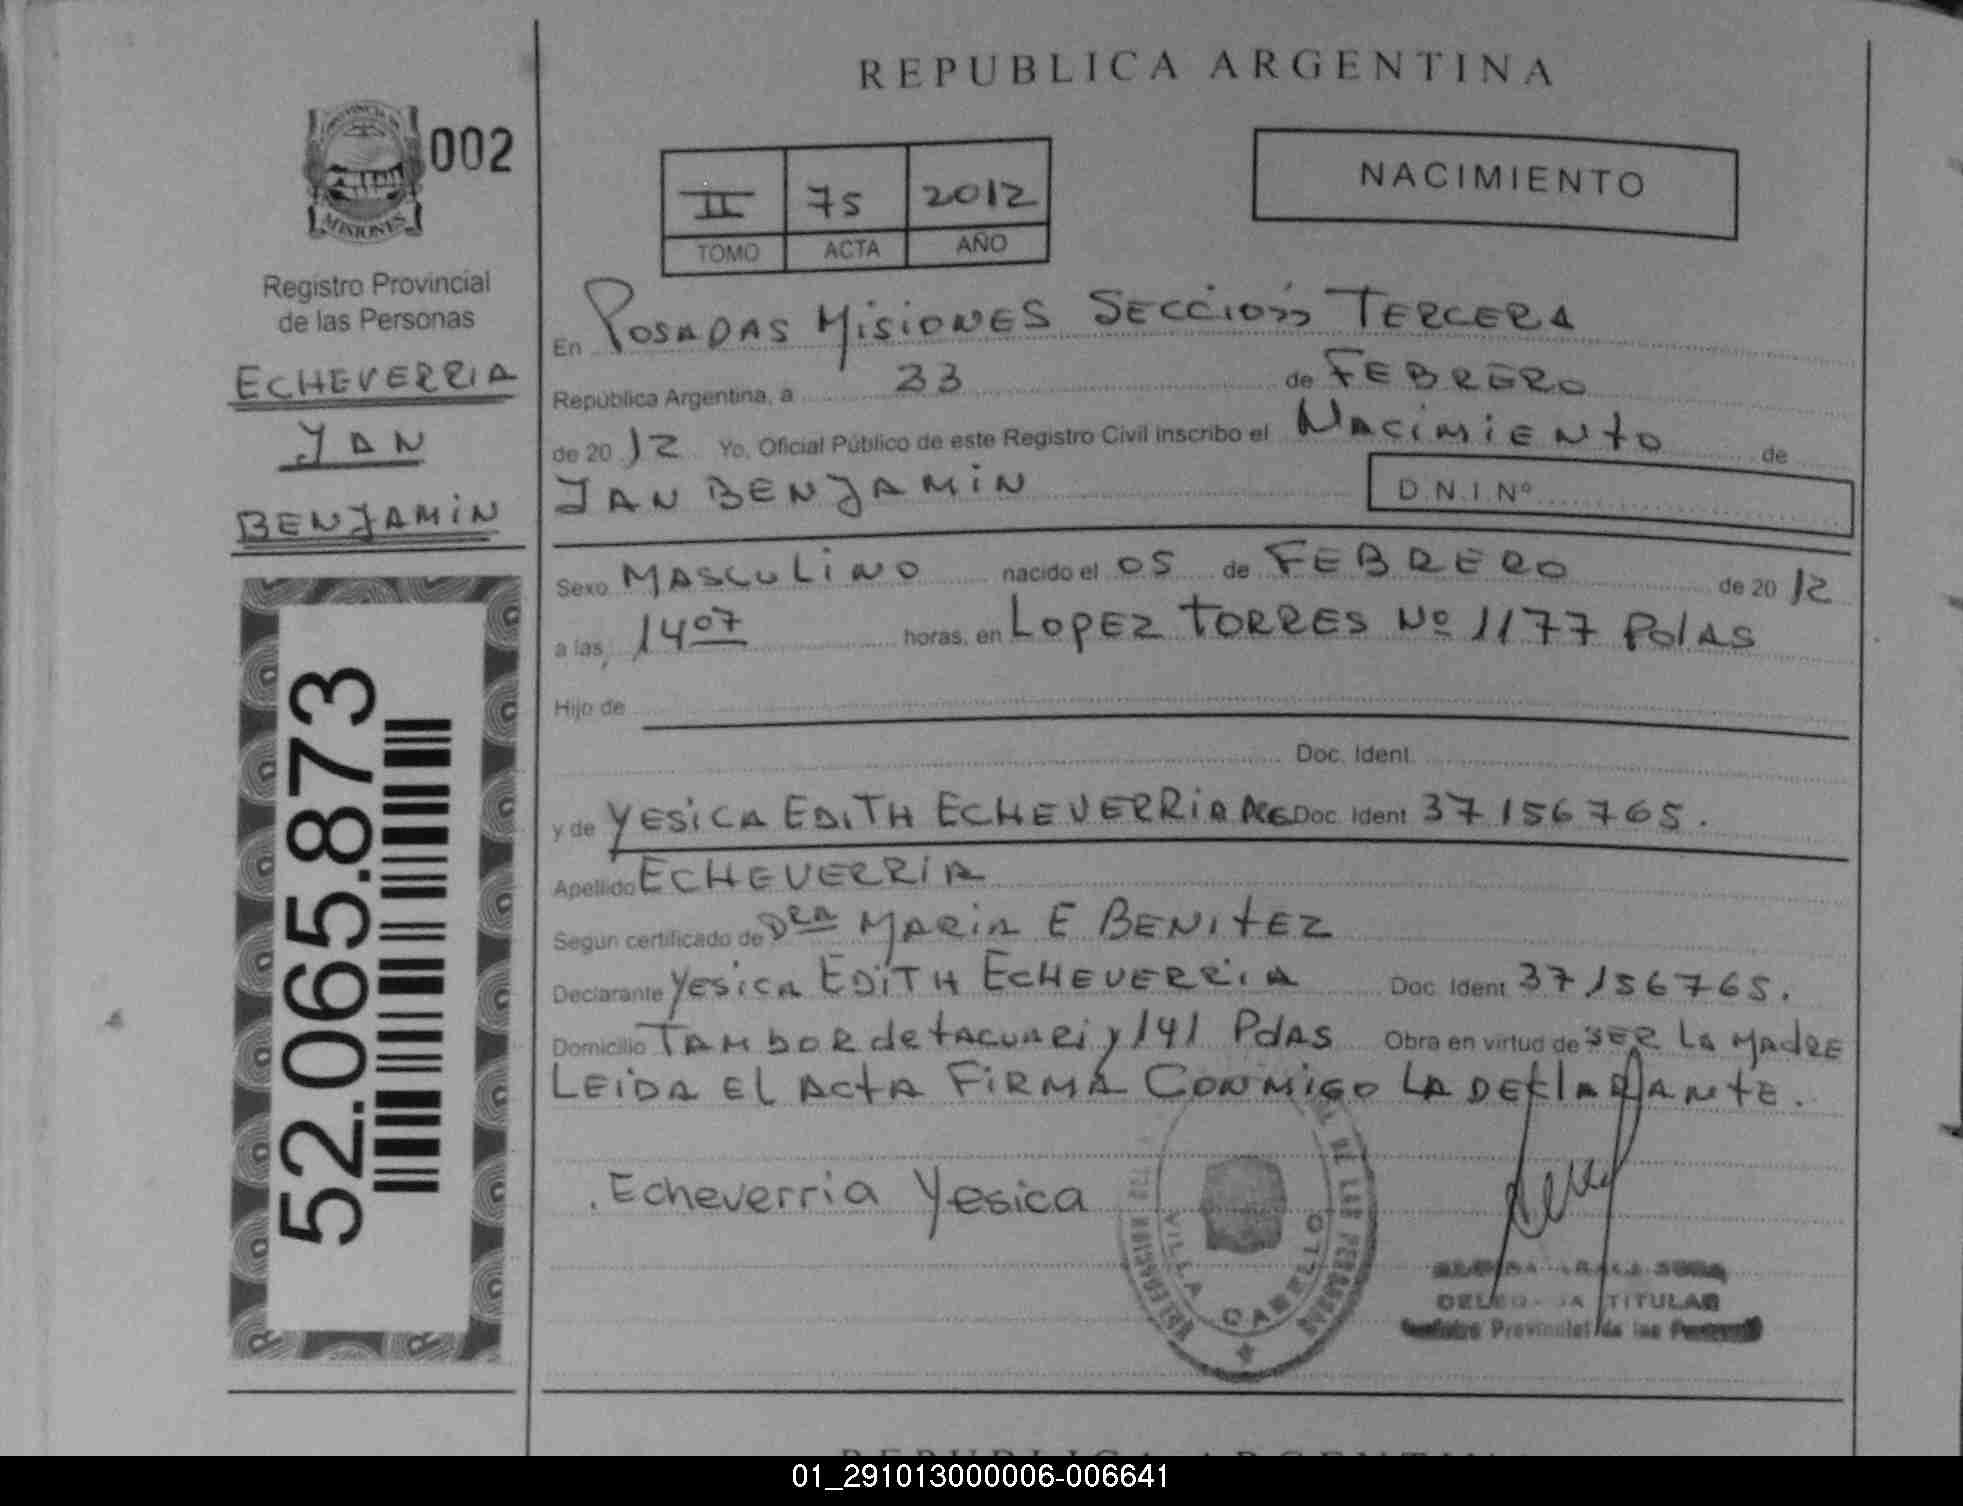 REPUBLICA ARGENTINA
PROVINCIA DE
MISIONES
002
II 75 2012
TOMO ACTA AÑO
NACIMIENTO
Registro Provincial
de las Personas
ECHEVERRIA
IAN
BENJAMIN
52.065.873
En POSADAS MISIONES SECCION TERCERA
República Argentina, a 23 de FEBRERO
de 2012 Yo, Oficial Público de este Registro Civil inscribo el Nacimiento de
IAN BENJAMIN D.N.I. Nº
Sexo MASCULINO nacido el 05 de FEBRERO de 2012
a las 14 07 horas, en LOPEZ TORRES Nº 1177 PdAS
Hijo de
Doc. Ident.
y de YESICA EDITH ECHEVERRIA ARG Doc. Ident 37156765.
Apellido ECHEVERRIA
Según certificado de DRA MARIA E BENITEZ
Declarante YESICA EDITH ECHEVERRIA Doc. Ident 37156765.
Domicilio TAMBOR de TACUARI y 141 PdAS Obra en virtud de SER LA MADRE
LEIDA EL ACTA FIRMA CONMIGO LA DECLARANTE.
Echeverria Yesica
DE LAS PERSONAS
VILLA CABELLO
TITULAR
Provincial de las
REPUBLICA ARGENTINA
01_291013000006-006641